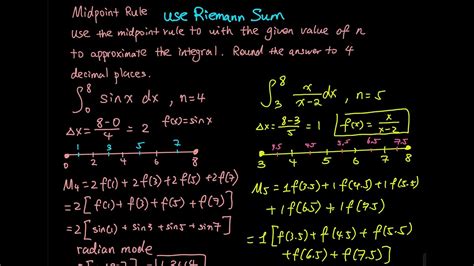 Midpoint Rule use Riemann Sum
use the midpoint rule to with the given value of n
to approximate the integral. Round the answer to 4
decimal places.
∫₀⁸ sinx dx , n=4
Δx = 8-0/4 = 2 f(x)=sinx
1 3 5 7
0 2 4 6 8
M₄ = 2f(1) + 2f(3) + 2f(5) + 2f(7)
= 2[f(1) + f(3) + f(5) + f(7)]
= 2[sin1 + sin3 + sin5 + sin7]
radian mode
∫₃⁸ x/x-2 dx , n=5
Δx = 8-3/5 = 1 f(x) = x/x-2
3.5 4.5 5.5 6.5 7.5
3 4 5 6 7 8
M₅ = 1f(3.5) + 1f(4.5) + 1f(5.5)
+ 1f(6.5) + 1f(7.5)
= 1[f(3.5) + f(4.5) + f(5.5)
+ f(6.5) + f(7.5)]